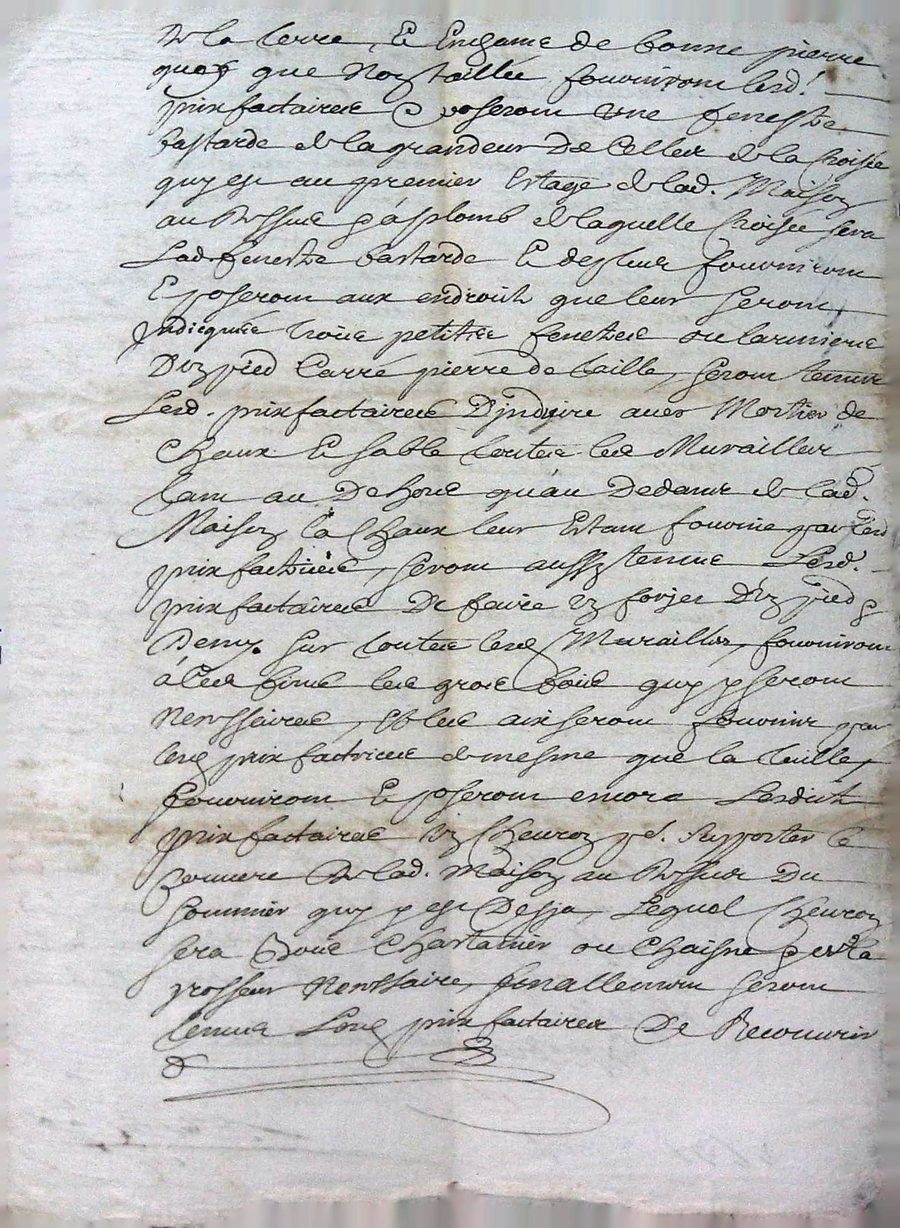 de la terre, et engame de bonne pierre
quoy que non taillée fourniront lesd.
prixfactaires & poseront une fenestre
bastarde de la grandeur de celles de la croisée
quy est au premier estage de lad. Maison
au dessus & à plomb de laquelle croisée sera
lad. fenestre bastarde et de plus fourniront
et poseront aux endroits que leur seront
indicquée trois petites fenestres ou larmieres
d'un pied carré pierre de taille, seront tenus
lesd. prixfactaires d'induire avec mortier de
chaux et sable toutes les murailles
tant au dehors qu'au dedans de lad.
Maison la chaux leur estant fournie par lesd
prixfactaires, seront aussy tenus lesd.
prixfactaires de faire un forjet d'un pied &
demy sur toutes lesd murailles, fourniront
à ces fins les gros bois quy y seront
nenssaires, et les aix seront fournir par
lesd prixfactaires de mesme que la tuille,
fourniront et poseront encore lesdits
prixfactaires un chevron pr. supporter le
couvert de lad. maison au dessus du
sommier quy y est desja, lequel chevron
sera bois chastanier ou chaisne & de la
grosseur nenssaire, finallement seront
tenus lesd prixfactaires de recouvrir